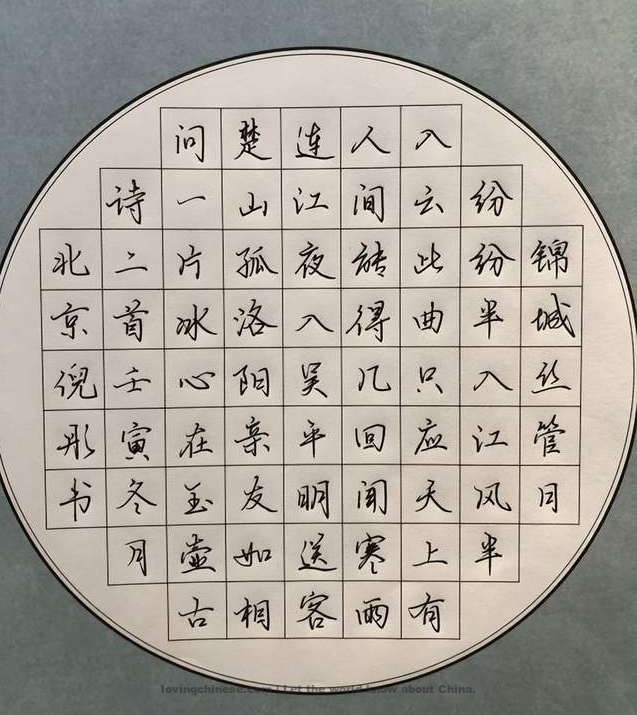 锦城丝管日
纷纷半入江风半
入云此曲只应天上有
人间能得几回闻寒雨
连江夜入吴平明送客
楚山孤洛阳亲友如相
问一片冰心在玉壶古
诗二首壬寅冬月
北京倪彤书
lovingchinese.com | Let the world know about China.